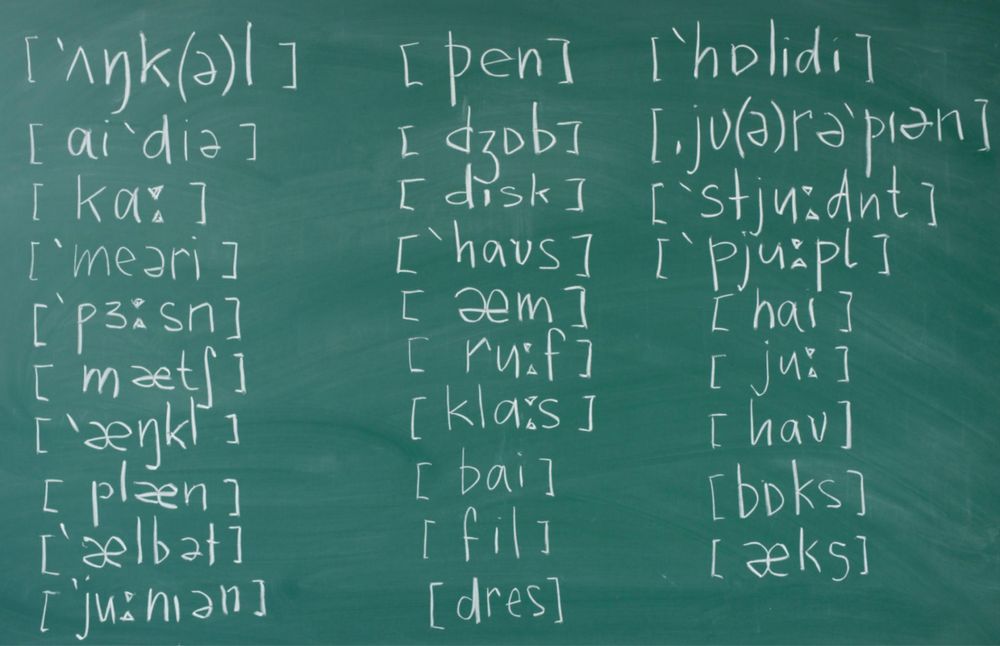 [ˋʌŋk(ə)l]
[aiˋdiə]
[kaː]
[ˋmeəri]
[ˋpɜːsn]
[mætʃ]
[ˋæŋkl]
[plæn]
[ˋælbət]
[ˋjuːnıən]
[pen]
[dʒɒb]
[disk]
[ˋhaʋs]
[æm]
[ruːf]
[klaːs]
[bai]
[fil]
[dres]
[ˋhɒlidi]
[ˌjʋ(ə)rəˋpıən]
[ˋstjuːdnt]
[ˋpjuːpl]
[hai]
[juː]
[haʋ]
[bɒks]
[æks]